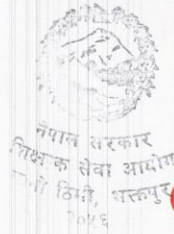 नेपाल सरकार
शिक्षक सेवा आयोग
ठिमी, भक्तपुर
२०५६